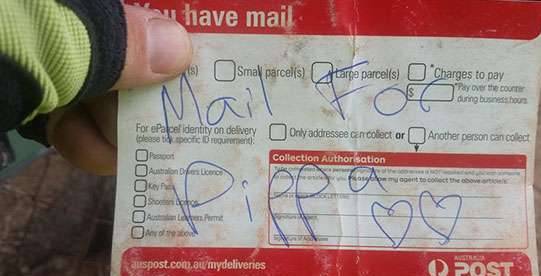 You have mail
(s) Small parcel(s) Large parcel(s) *Charges to pay
$ *Pay over the counter
during business hours
Mail For
For eParcel identity on delivery
(please tick specific ID requirement):
Only addressee can collect or Another person can collect
Passport
Australian Drivers Licence
Key Pass
Shooters Licence
Australian Learners Permit
Any of the above
Collection Authorisation
Pippa
my agent to collect the above article/s
Signature of Addressee
auspost.com.au/mydeliveries
AUSTRALIA
POST